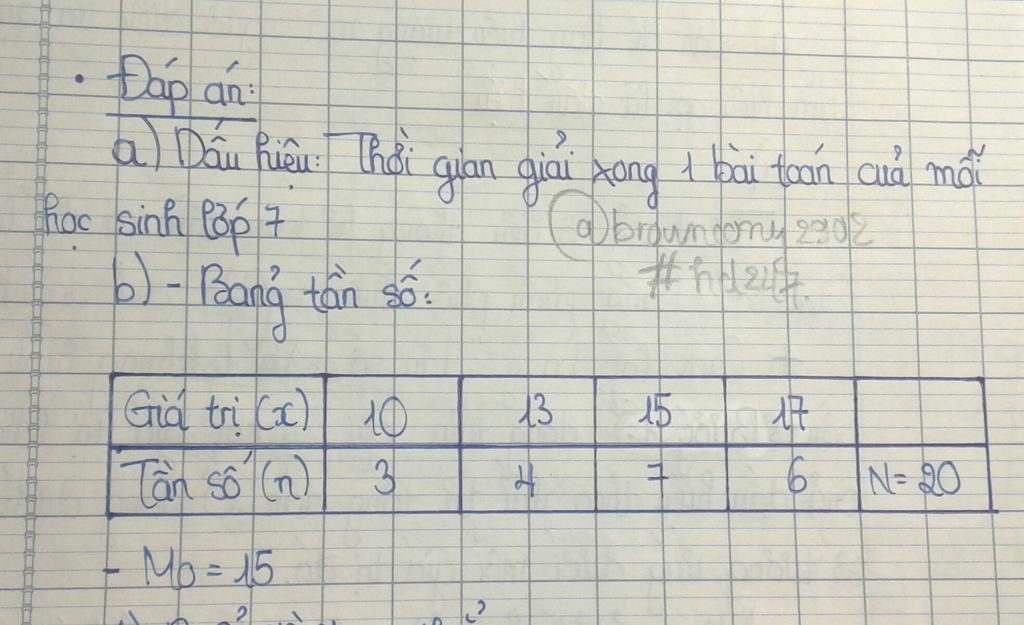 • Đáp án:
a) Dấu hiệu: Thời gian giải xong 1 bài toán của mỗi
học sinh lớp 7
@browncony2302
#hd247.
b) - Bảng tần số:
Giá trị (x) 10 13 15 17
Tần số (n) 3 4 7 6 N= 20
- Mo = 15